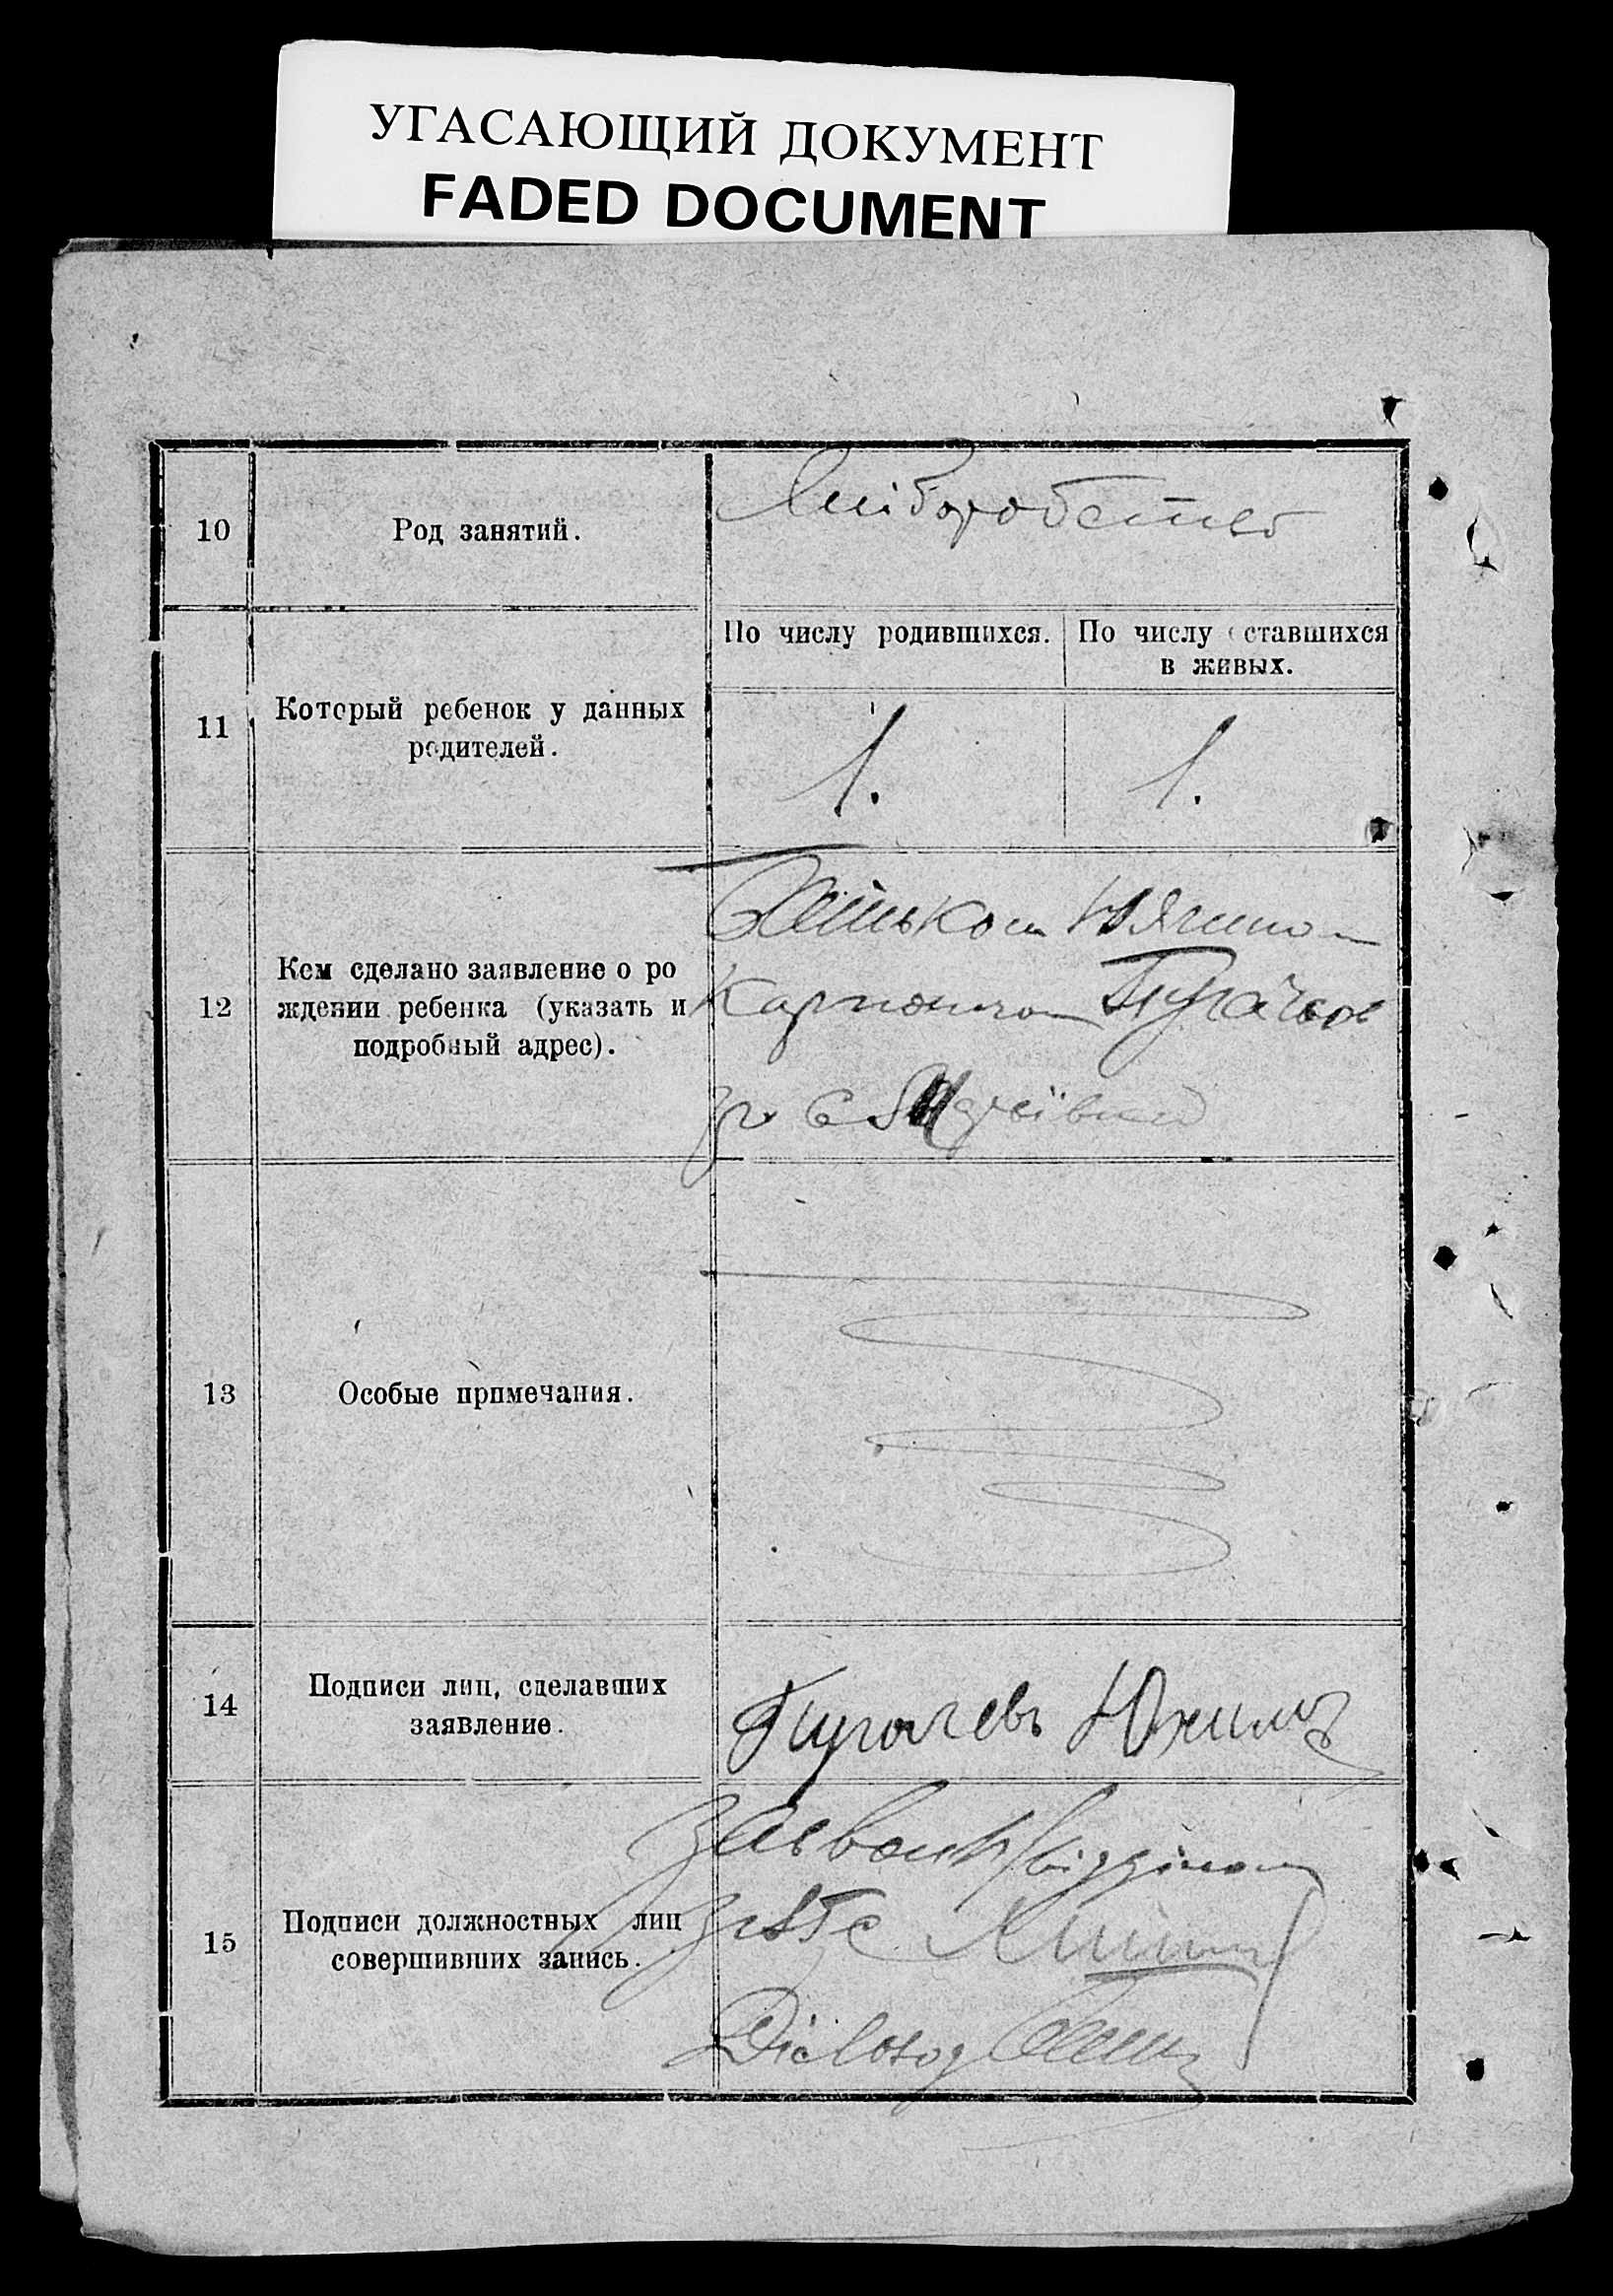 УГАСАЮЩИЙ ДОКУМЕНТ
FADED DOCUMENT
10
Род занятий.
Хліборобство
11
Который ребенок у данных
родителей.
По числу родившихся.
По числу оставшихся
в живых.
1.
1.
12
Кем сделано заявление о ро
ждении ребенка (указать и
подробный адрес).
Батьком
Карповичом Пугачов
гр. с.
13
Особые примечания.
14
Подписи лиц, сделавших
заявление.
Пугачевъ Юхимъ
15
Подписи должностных лиц
совершивших запись.
Діловод